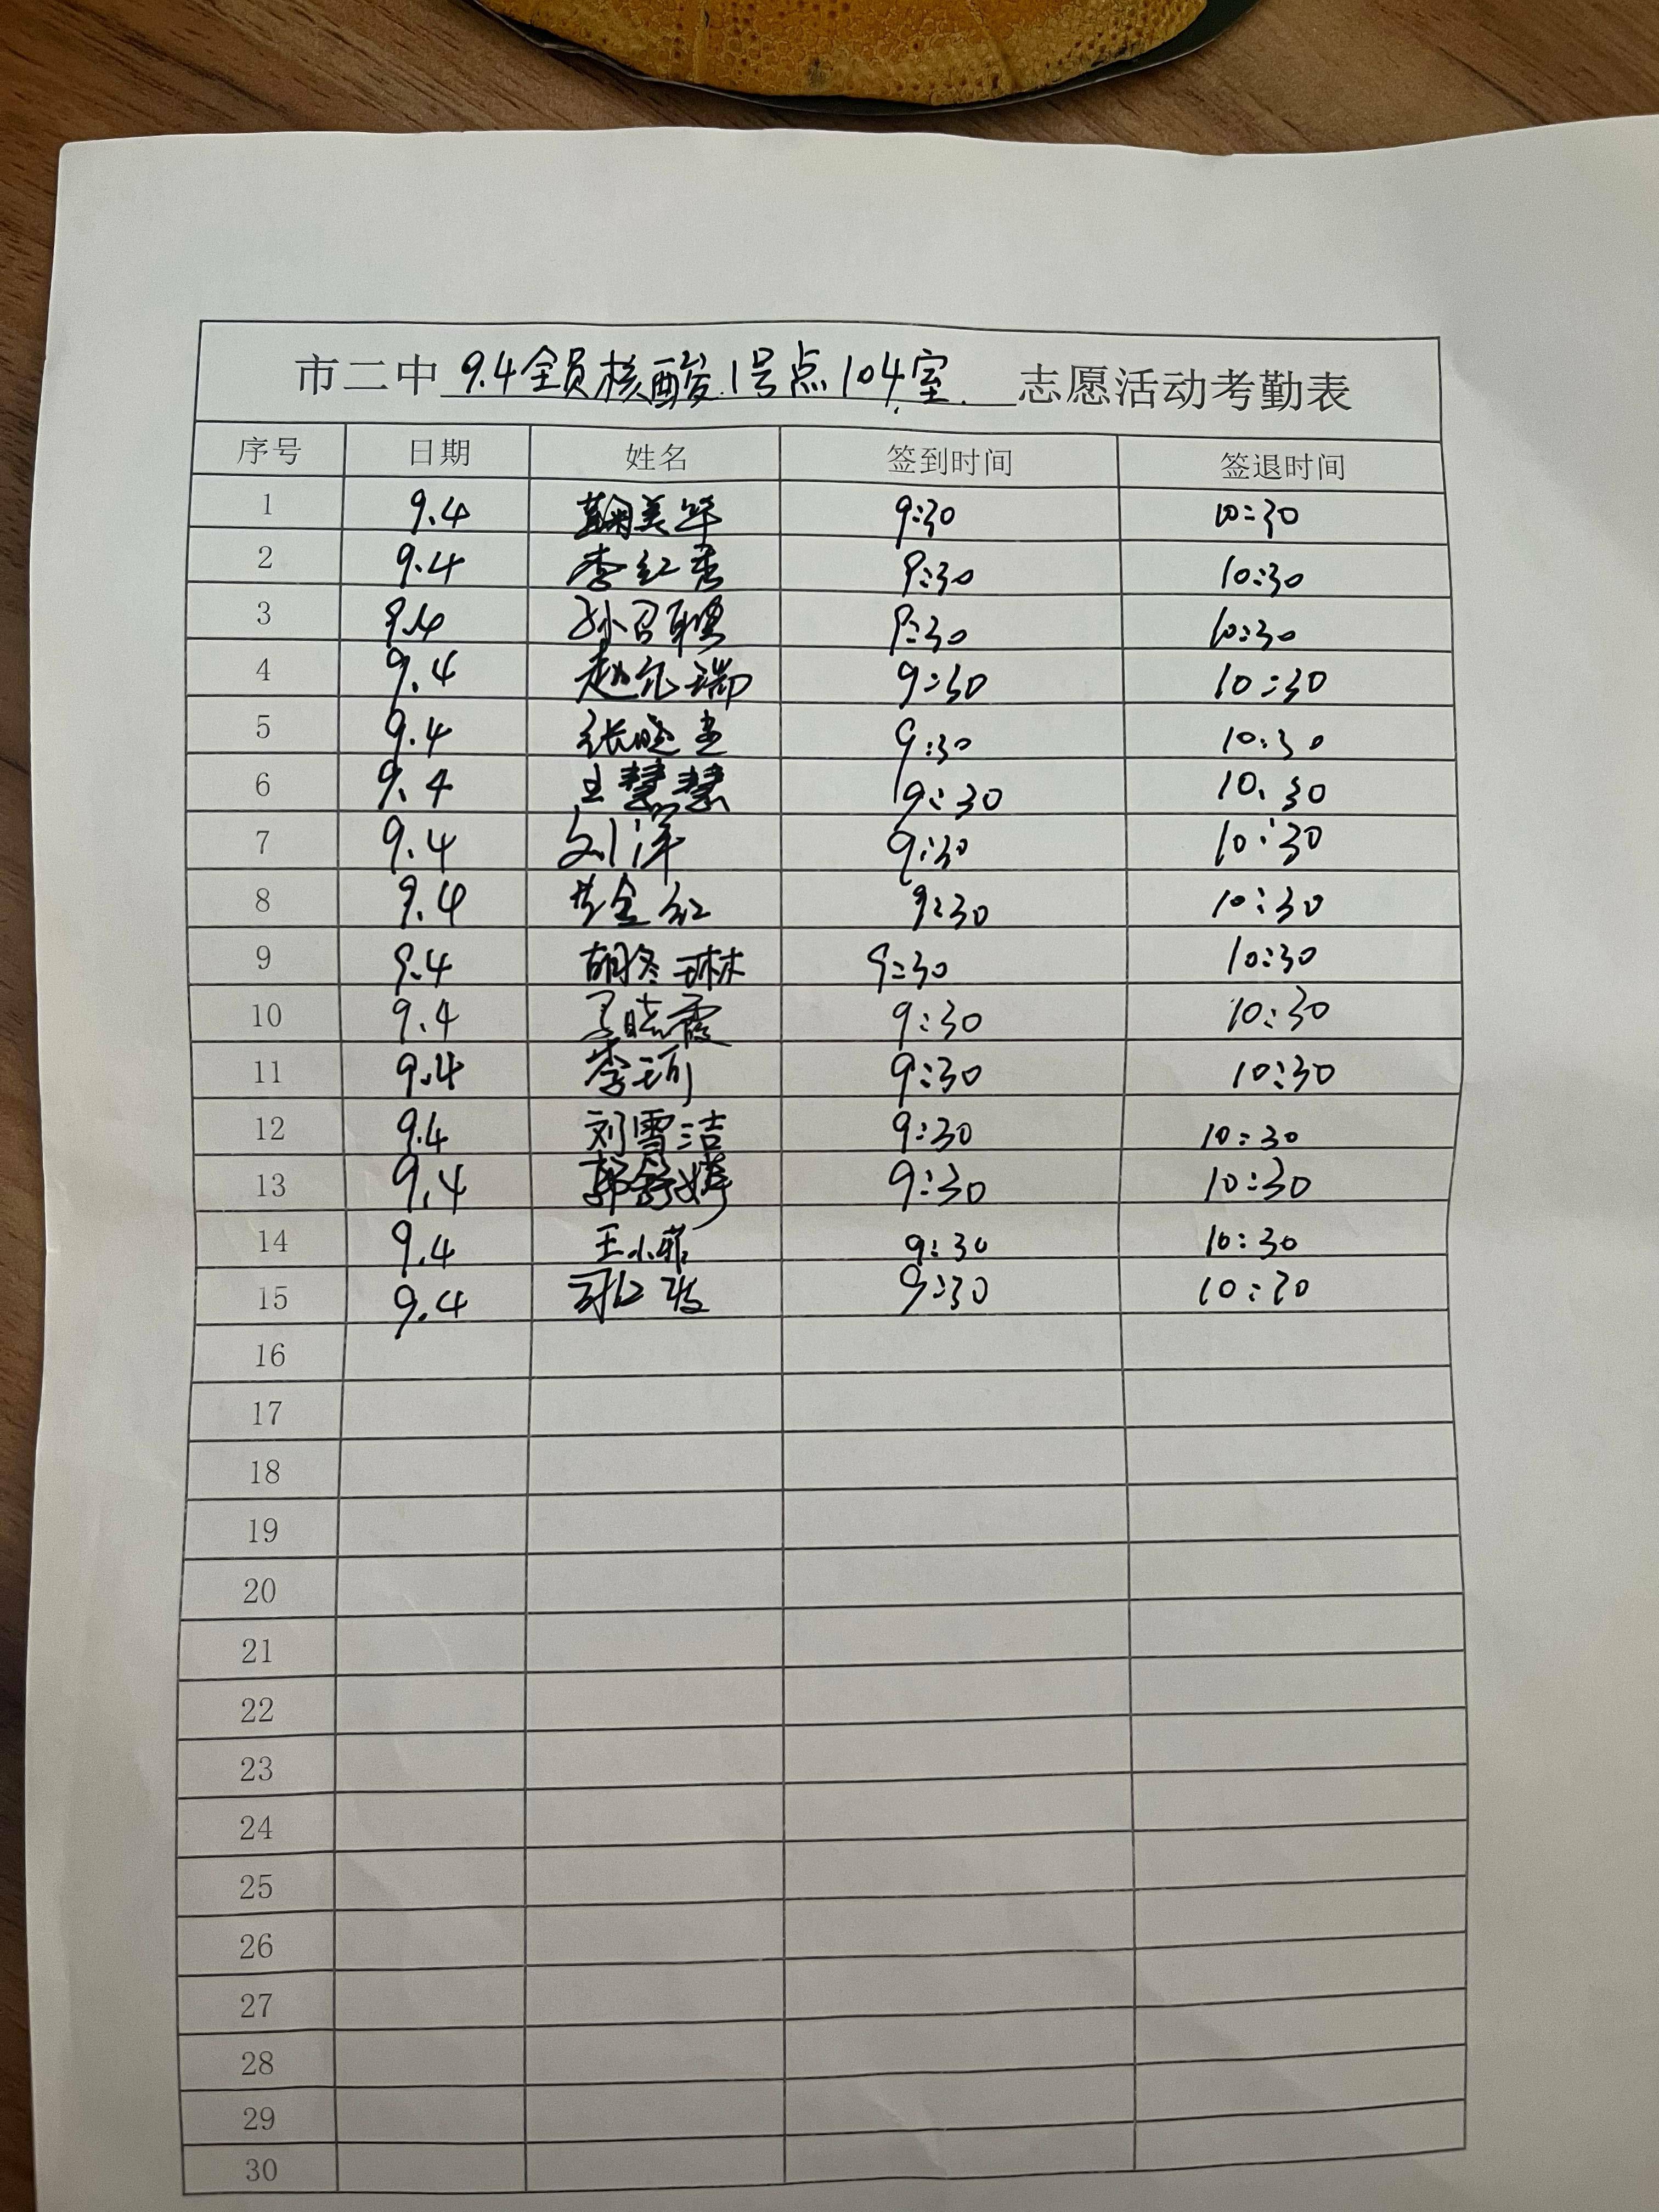 市二中 9.4全员核酸.1号点104室. 志愿活动考勤表
序号 日期 姓名 签到时间 签退时间
1 9.4 鞠美华 9:30 10:30
2 9.4 李红秀 9:30 10:30
3 9.4 9:30 10:30
4 9.4 赵尔瑞 9:30 10:30
5 9.4 9:30 10:30
6 9.4 王慧慧 9:30 10:30
7 9.4 刘洋 9:30 10:30
8 9.4 9:30 10:30
9 9.4 胡冬琳 9:30 10:30
10 9.4 9:30 10:30
11 9.4 李珂 9:30 10:30
12 9.4 刘雪洁 9:30 10:30
13 9.4 郭舒婷 9:30 10:30
14 9.4 王小菲 9:30 10:30
15 9.4 9:30 10:30
16
17
18
19
20
21
22
23
24
25
26
27
28
29
30